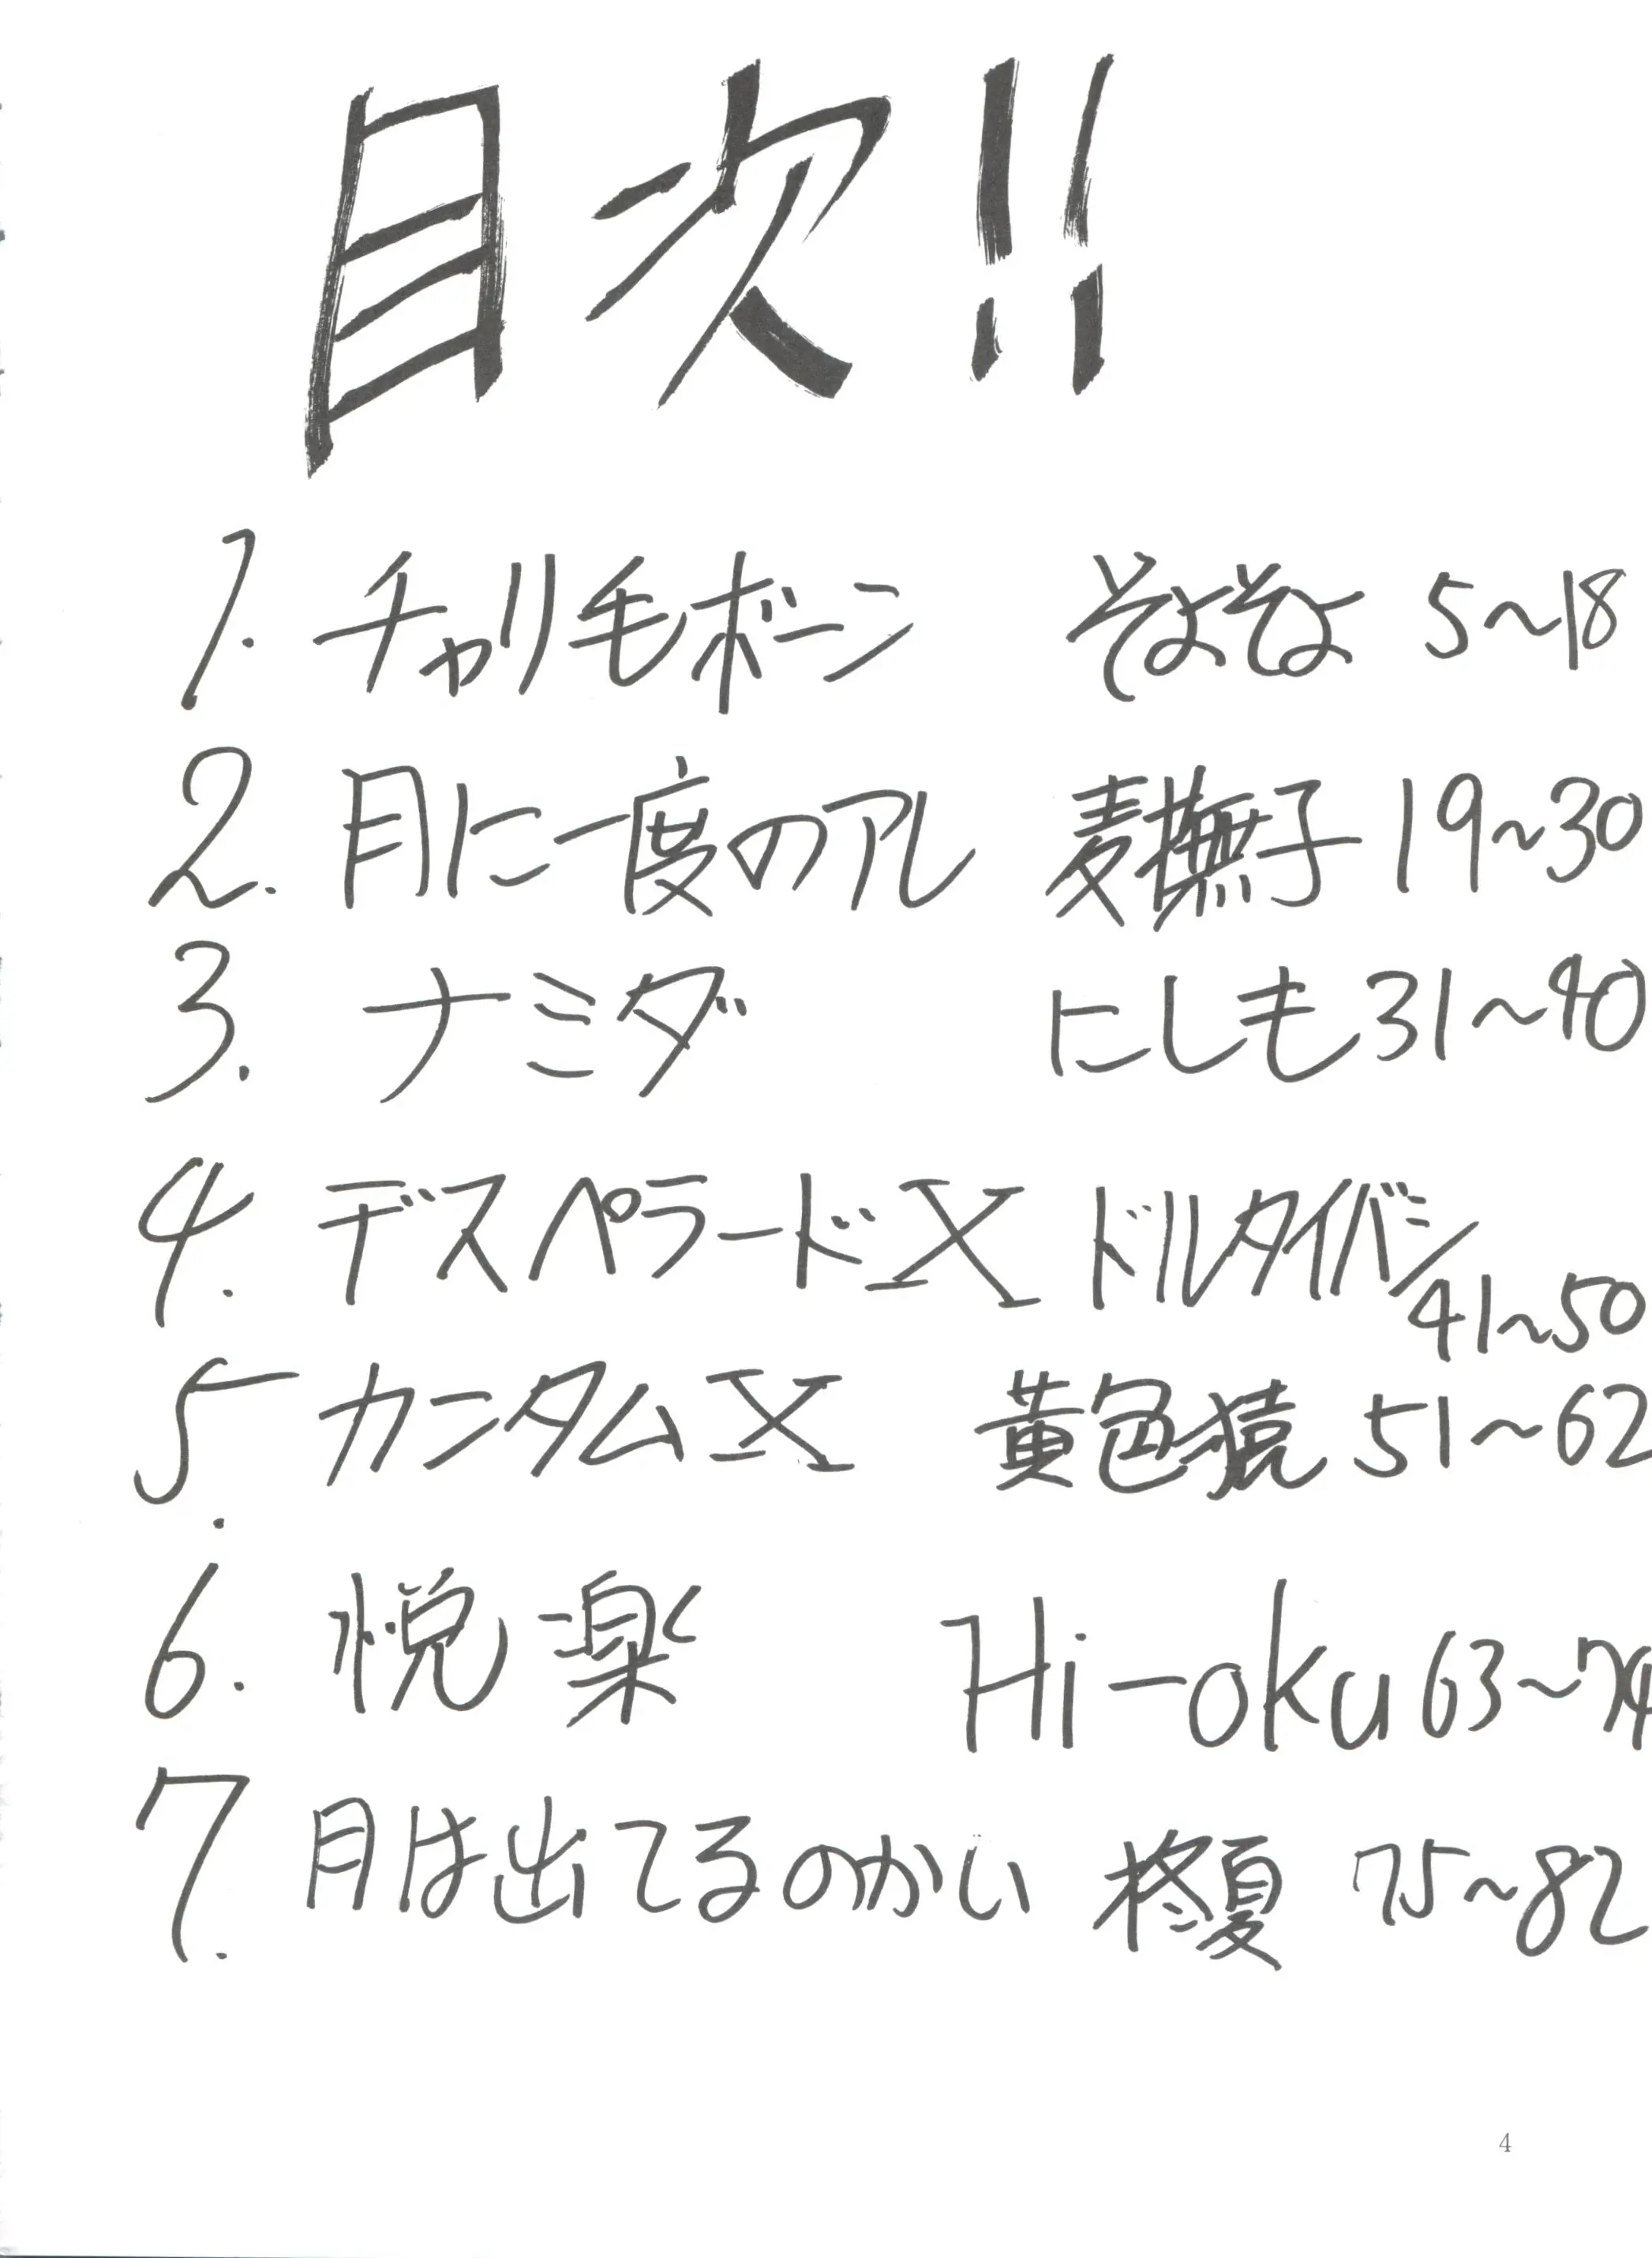 目次!!
1. チャリ毛ボーン そよそよ 5〜18
2. 月に一度のアレ 麦撫子 19〜30
3. ナミダ にしも 31〜40
4. デスペラードX ドルタイバーン 41〜50
5. カンタムX 黄色猿 51〜62
6. 悦楽 Hi-oku 63〜74
7. 月は出てるのかい 柊夏 75〜82
4